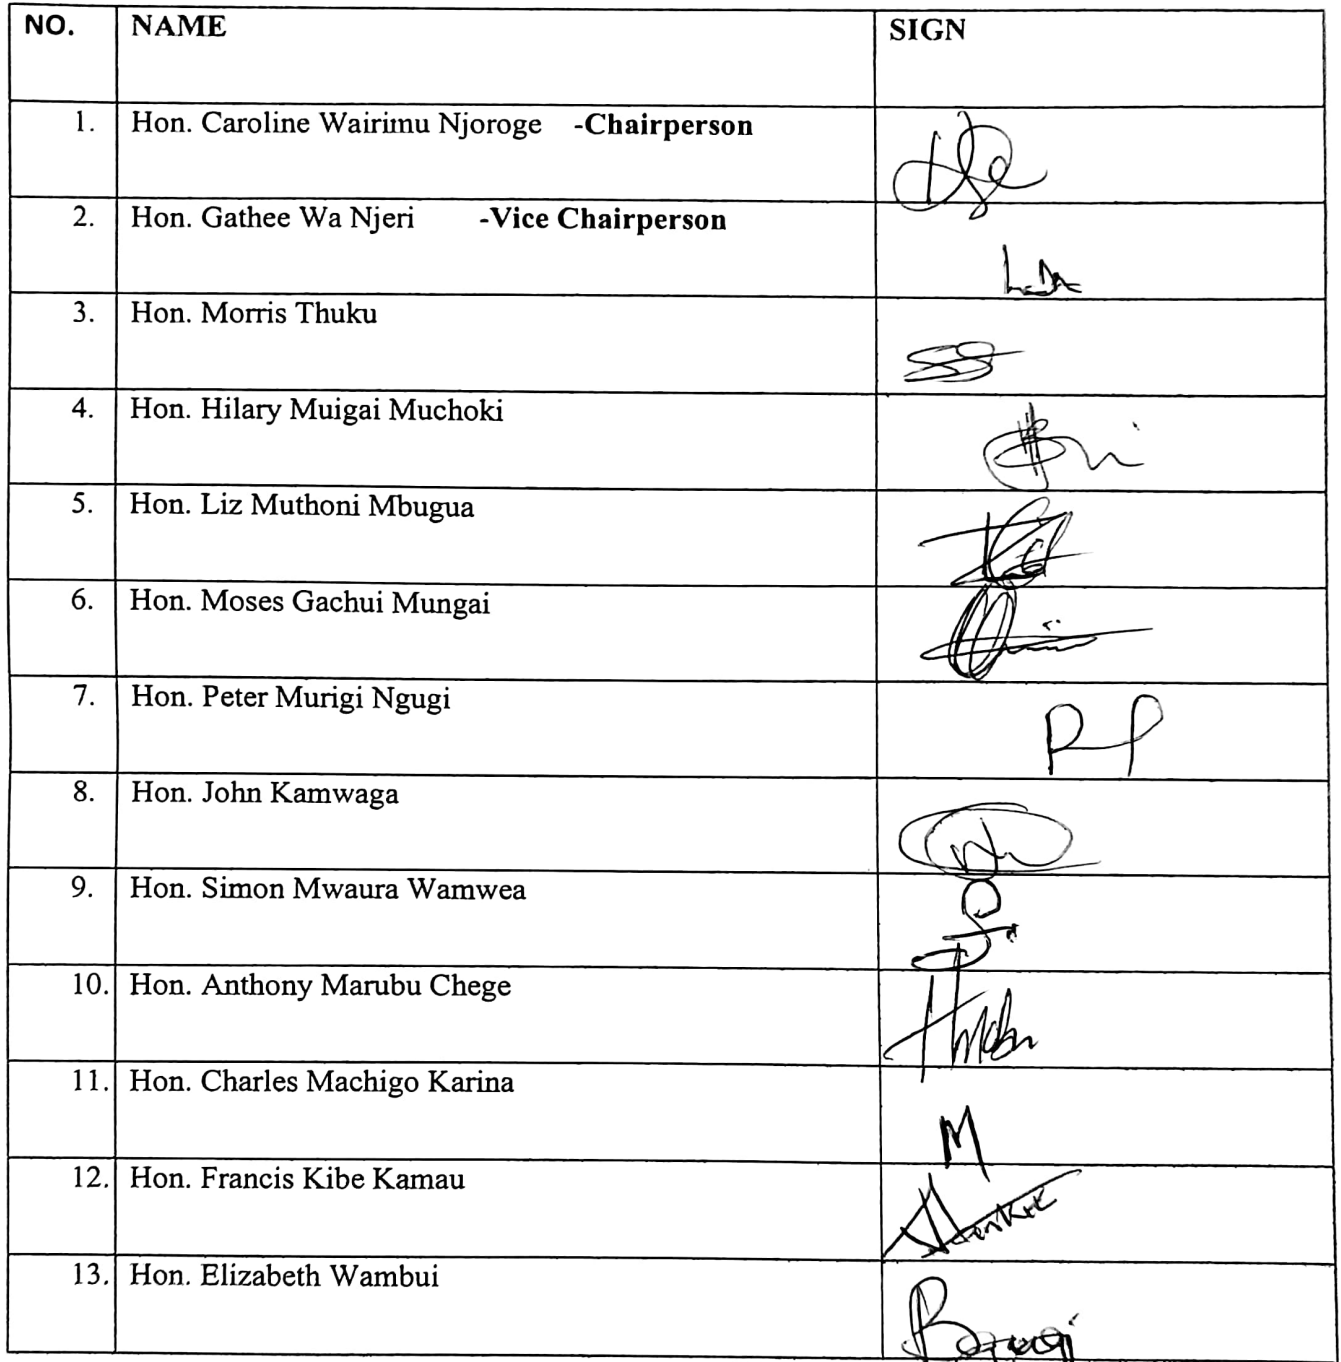 NO. NAME SIGN
1. Hon. Caroline Wairimu Njoroge -Chairperson
2. Hon. Gathee Wa Njeri -Vice Chairperson
3. Hon. Morris Thuku
4. Hon. Hilary Muigai Muchoki
5. Hon. Liz Muthoni Mbugua
6. Hon. Moses Gachui Mungai
7. Hon. Peter Murigi Ngugi
8. Hon. John Kamwaga
9. Hon. Simon Mwaura Wamwea
10. Hon. Anthony Marubu Chege
11. Hon. Charles Machigo Karina
M
12. Hon. Francis Kibe Kamau
13. Hon. Elizabeth Wambui